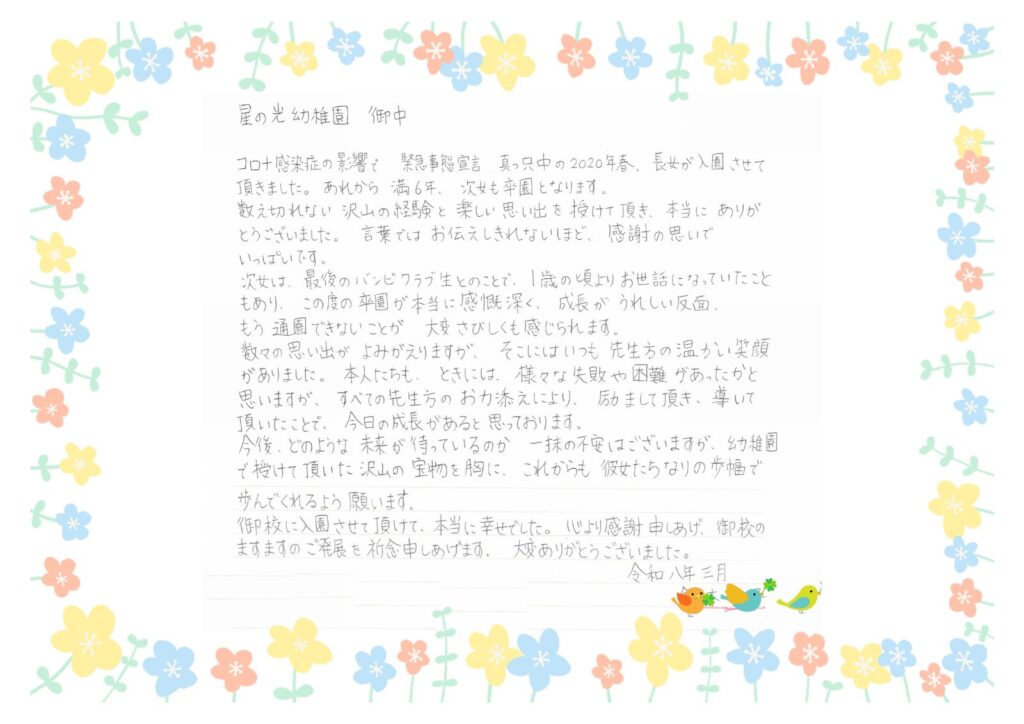 星の光幼稚園 御中
コロナ感染症の影響で 緊急事態宣言 真っ只中の2020年春、長女が入園させて
頂きました。あれから 満6年、次女も卒園となります。
数え切れない 沢山の経験と 楽しい 思い出を 授けて 頂き、本当に ありが
とうございました。 言葉では お伝えしきれないほど、 感謝の思いで
いっぱいです。
次女は、最後のバンビクラブ生とのことで、1歳の頃より お世話になっていたこと
もあり、この度の卒園が本当に感慨深く、成長が うれしい反面、
もう通園できないことが 大変さびしくも感じられます。
数々の思い出が よみがえりますが、そこにはいつも 先生方の温かい笑顔
がありました。本人たちも、ときには、様々な失敗や困難があったかと
思いますが、すべての先生方の お力添えにより、励まして頂き、導いて
頂いたことで、今日の成長があると思っております。
今後、どのような 未来が待っているのか 一抹の不安はございますが、幼稚園
で授けて頂いた沢山の宝物を胸に、これからも 彼女たちなりの歩幅で
歩んでくれるよう 願います。
御校に入園させて頂けて、本当に幸せでした。心より感謝申しあげ、御校の
ますますのご発展を祈念申しあげます。 大変ありがとうございました。
令和八年三月